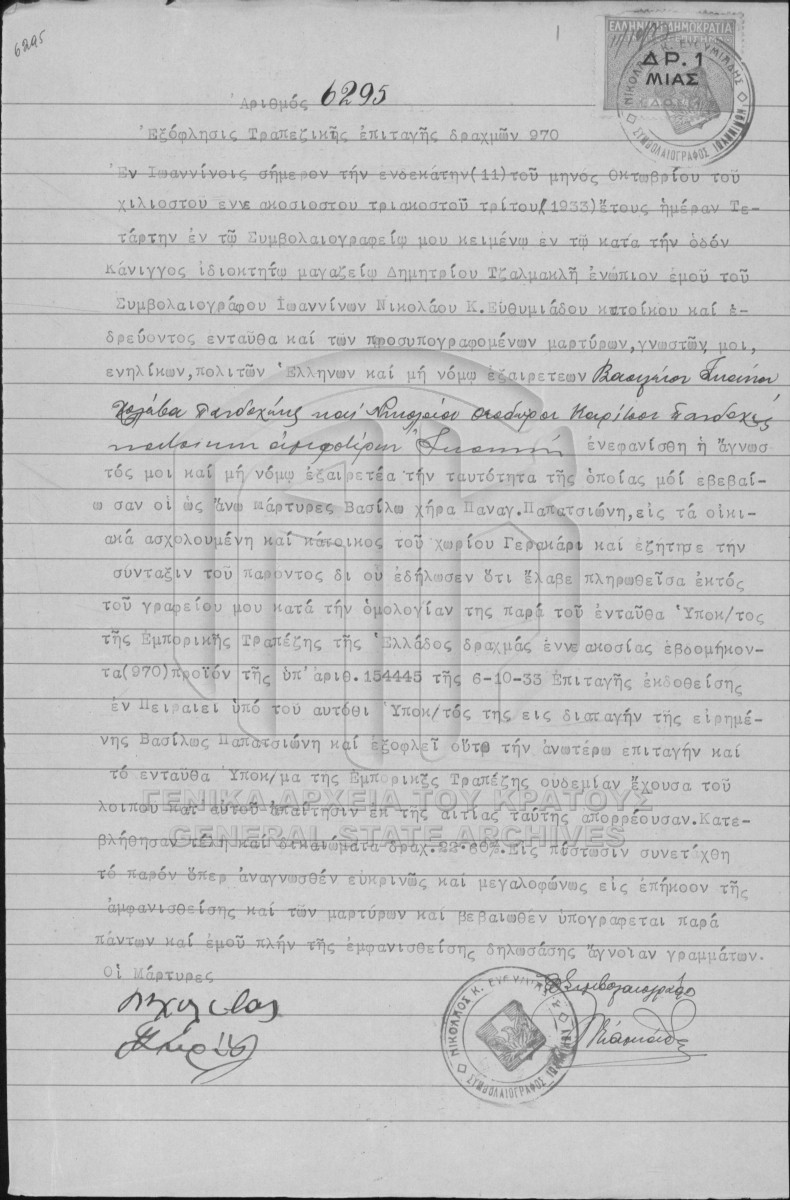 6295
ΕΛΛΗΝΙΚΗ ΔΗΜΟΚΡΑΤΙΑ
ΔΡ. 1
ΜΙΑΣ
ΝΙΚΟΛΑΟΣ Κ. ΕΥΘΥΜΙΑΔΗΣ
ΣΥΜΒΟΛΑΙΟΓΡΑΦΟΣ ΙΩΑΝΝΙΝΩΝ
Αριθμός 6295
Εξόφλησις Τραπεζικῆς ἐπιταγῆς δραχμῶν 970
Ἐν Ιωαννίνοις σήμερον τήν ενδεκάτην(11)τοῦ μηνός Οκτωβρίου τοῦ
χιλιοστοῦ εννε ακοσιοστου τριακοστοῦ τρίτου(1933)ἔτους ἡμέραν Τε-
τάρτην ἐν τῷ Συμβολαιογραφείῳ μου κειμένῳ εν τῷ κατα τήν ὁδόν
Κάνιγγος ἰδιοκτήτῳ μαγαζείῳ Δημητρίου Τζαλμακλῆ ἐνώπιον ἐμοῦ τοῦ
Συμβολαιογράφου Ιωαννίνων Νικολάου Κ.Ευθυμιάδου κατοίκου καί ἑ-
δρεύοντος ενταῦθα καί τῶν προσυπογραφομένων μαρτύρων,γνωστῶν μοι,
ενηλίκων,πολιτῶν Ἑλληνων καί μή νόμῳ ἐξαιρετεων Βασιλείου
καί Νικολάου
κατοίκων ἀμφοτέρων ἐνεφανίσθη ἡ ἄγνωσ
τός μοι καί μή νόμῳ ἐξαιρετέα τήν ταυτότητα τῆς ὁποίας μόί ἐβεβαί-
ω σαν οἱ ὡς ἄνω μάρτυρες Βασίλω χήρα Παναγ.Παπατσιώνη,εἰς τά οἰκι-
ακά ασχολουμένη καί κάτοικος τοῦ χωρίου Γερακάρι καί εζήτησε τήν
σύνταξιν τοῦ παροντος δι οὗ ἐδήλωσεν ὅτι ἔλαβε πληρωθεῖσα ἐκτός
τοῦ γραφείου μου κατά τήν ὁμολογίαν της παρά τοῦ ἐνταῦθα Ὑποκ/τος
τῆς Εμπορικῆς Τραπέζης τῆς Ἑλλάδος δραχμάς ἐννε ακοσίας ἑβδομήκον-
τα(970)προϊόν τῆς ὑπ'ἀριθ.154445 τῆς 6-10-33 Επιταγῆς ἐκδοθείσης
ἐν Πειραιεῖ ὑπό τοῦ αυτόθι Ὑποκ/τός της εις διαταγήν τῆς εἰρημέ-
νης Βασίλως Παπατσιώνη καί ἐξοφλεῖ οὕτω τήν ἀνωτέρω επιταγήν καί
τό ενταῦθα Ὑποκ/μα τῆς Εμπορικζς Τραπέζης ουδεμίαν ἔχουσα τοῦ
λοιπου κατ αυτοῦ ἀπαίτησιν ἐκ τῆς αἰτίας ταύτης απορρέουσαν.Κατε-
βλήθησαν τέλη καί δικαιώματα δραχ.22·60%.Εἰς πίστωσιν συνετάχθη
τό παρόν ὅπερ ἀναγνωσθέν εὐκρινῶς καί μεγαλοφώνως εἰς ἐπήκοον τῆς
ἀμφανισθείσης καί τῶν μαρτύρων καί βεβαιωθέν ὑπογράφεται παρά
πάντων καί ἐμοῦ πλήν τῆς ἐμφανισθείσης δηλωσάσης ἄγνοιαν γραμμάτων.
Οἱ Μάρτυρες
Ὁ Συμβολαιογράφος
ΝΙΚΟΛΑΟΣ Κ. ΕΥΘΥΜΙΑΔΗΣ
ΣΥΜΒΟΛΑΙΟΓΡΑΦΟΣ ΙΩΑΝΝΙΝΩΝ
ΓΕΝΙΚΑ ΑΡΧΕΙΑ ΤΟΥ ΚΡΑΤΟΥΣ
GENERAL STATE ARCHIVES